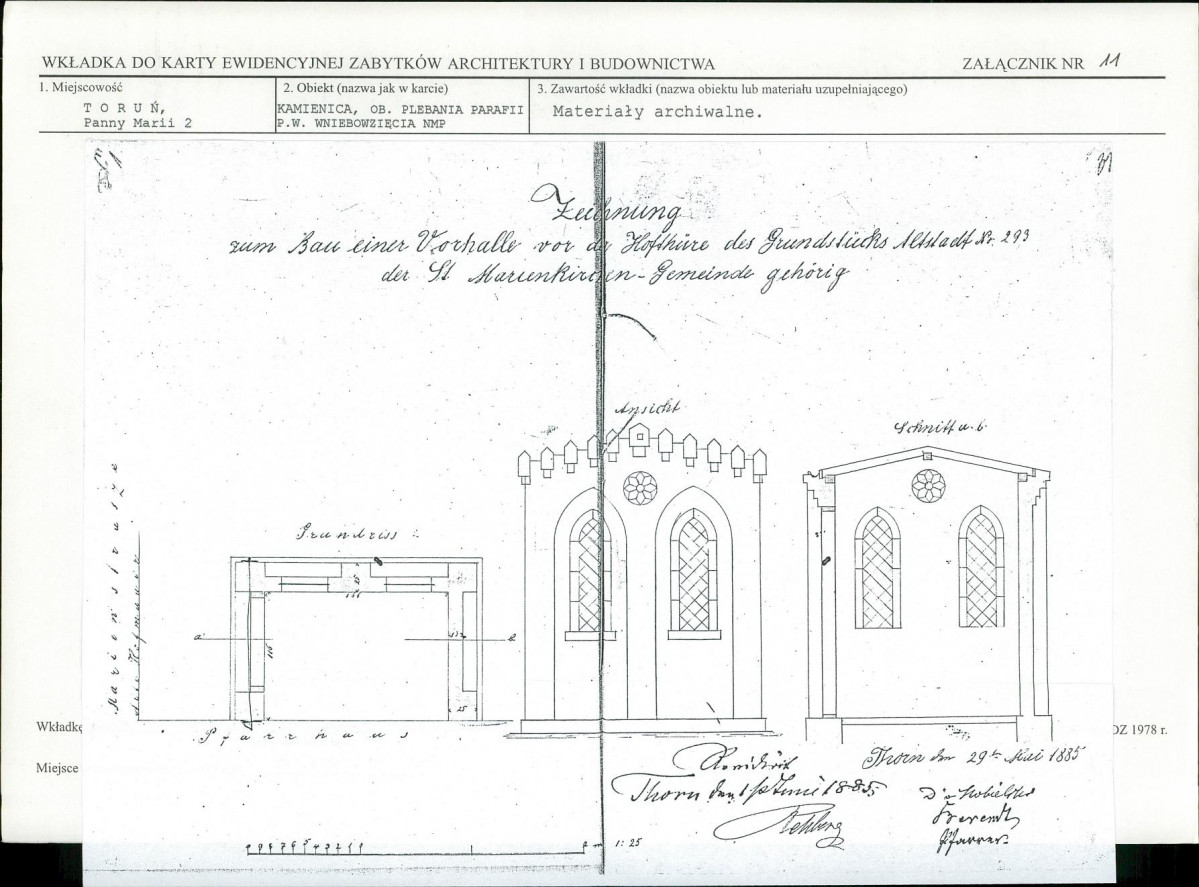 WKŁADKA DO KARTY EWIDENCYJNEJ ZABYTKÓW ARCHITEKTURY I BUDOWNICTWA
ZAŁĄCZNIK NR 11
1. Miejscowość
TORUŃ,
Panny Marii 2
2. Obiekt (nazwa jak w karcie)
KAMIENICA, OB. PLEBANIA PARAFII
P.W. WNIEBOWZIĘCIA NMP
3. Zawartość wkładki (nazwa obiektu lub materiału uzupełniającego)
Materiały archiwalne.
Zeichnung
zum Bau einer Vorhalle vor der Hofthüre des Grundstücks Altstadt Nr. 293
der St Marienkirchen-Gemeinde gehörig
Ansicht
Schnitt a. b.
Grundriss :
Marienstraße
a
b
25
25
Pfarrhaus
Wkładkę
OZ 1978 r.
Miejsce
Revidirt
Thorn den 1/ Juni 1885
Rehberg
Thorn den 29ten Mai 1885
Berendt
Pfarrer
1:25